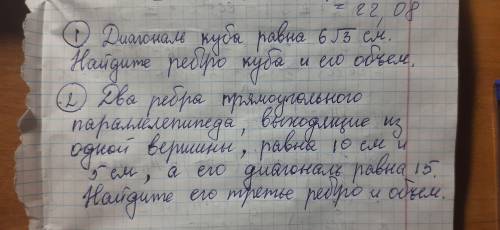 = 22,08
① Диагональ куба равна 6√3 см.
Найдите ребро куба и его объем.
② Два ребра прямоугольного
параллелепипеда, выходящие из
одной вершины, равна 10 см и
5 см, а его диагональ равна 15.
Найдите его третье ребро и объем.